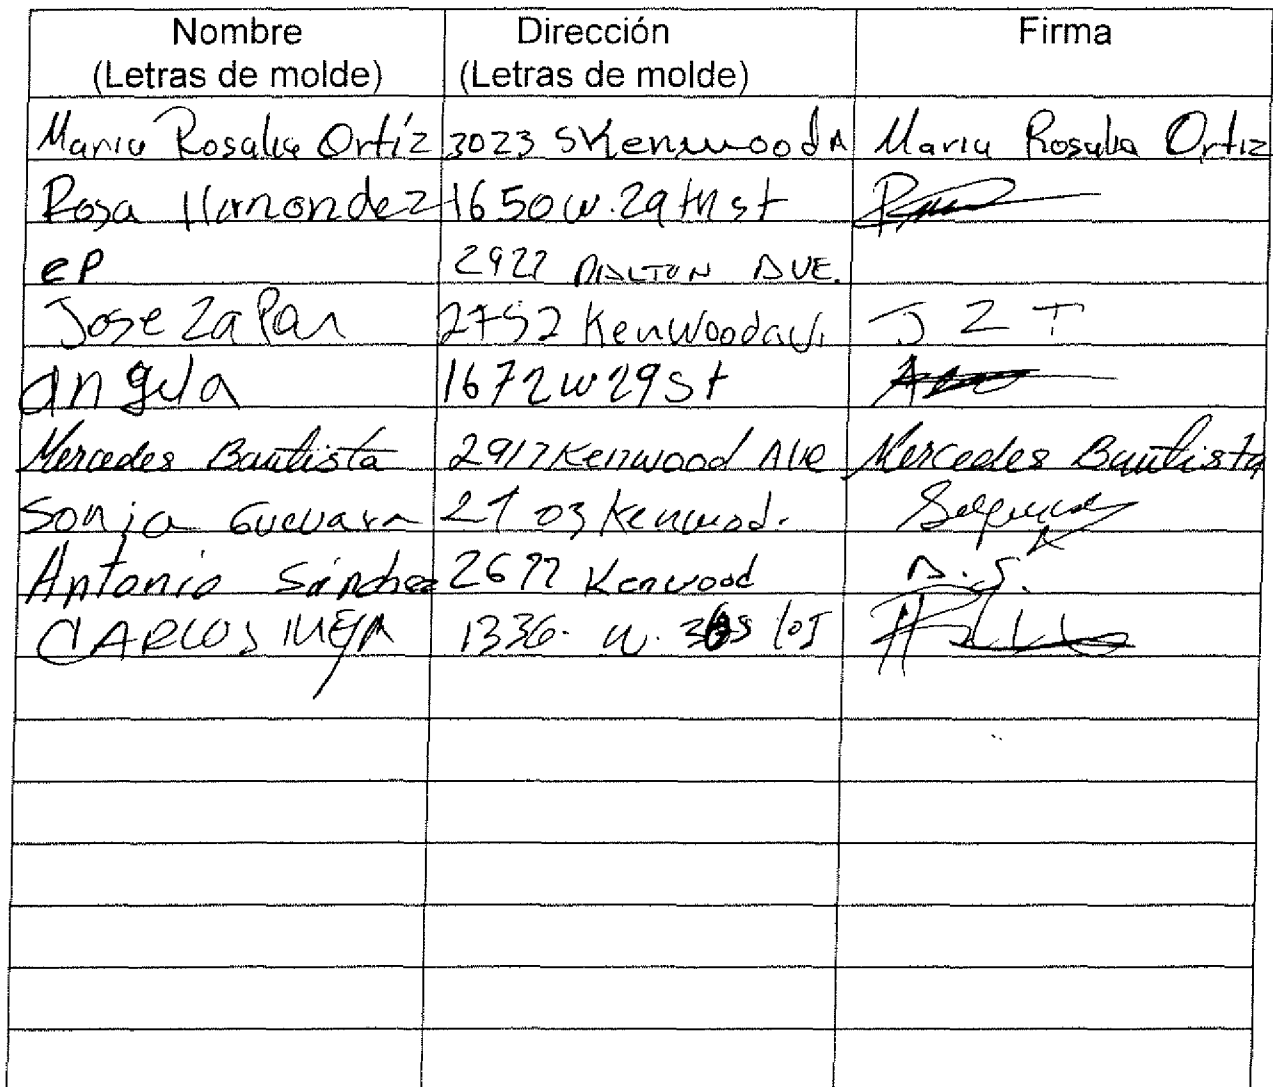 Nombre Dirección Firma
(Letras de molde) (Letras de molde)
Maria Rosalia Ortíz 3023 S Kenwood A Maria Rosalia Ortiz
Rosa Hernandez 1650 W. 29 th st
eP 2922 DALTON AVE.
Jose Zapan 2752 Kenwood av. J Z T
angela 1672 w 29 st
Mercedes Bautista 2917 Kenwood Ave Mercedes Bautista
Sonia Guevara 2703 Kenwood.
Antonio Sánchez 2677 Kenwood A.S.
CARLOS MEJA 1336. W.